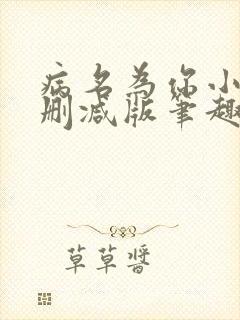 病名为你小
删减版笔趣
草草酱